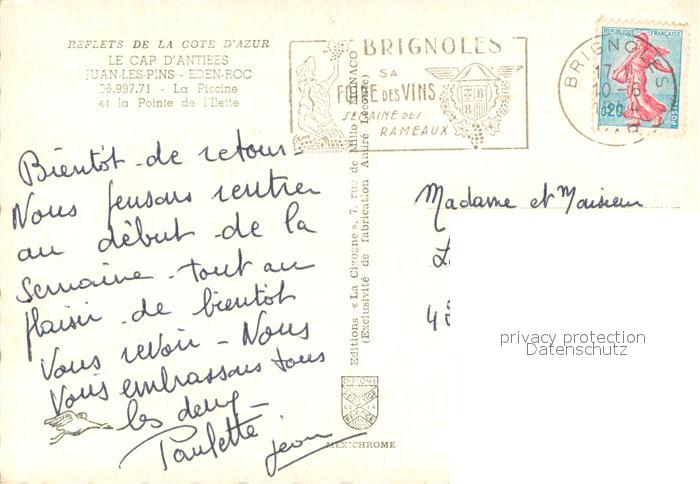 REFLETS DE LA COTE D'AZUR
LE CAP D'ANTIBES
JUAN-LES-PINS - EDEN-ROC
06.997.71 - La Piscine
et la Pointe de l'Ilette
BRIGNOLES
SA
FOIRE DES VINS
SEMAINE DES
RAMEAUX
BRIGNOLES
17 H
10-6
VAR
REPUBLIQUE FRANÇAISE
0,20
POSTES
Bientôt de retour -
Nous pensons rentrer
au début de la
semaine - tout au
plaisir de bientôt
vous revoir - Nous
vous embrassons tous
les deux -
Paulette
Jean
Editions « La Cigogne », 7, rue de Millo, MONACO
(Exclusivité de fabrication André Leconte)
DIPLOME
PRESTIGE
DE LA
FRANCE
MEXICHROME
Madame et Monsieur
privacy protection
Datenschutz